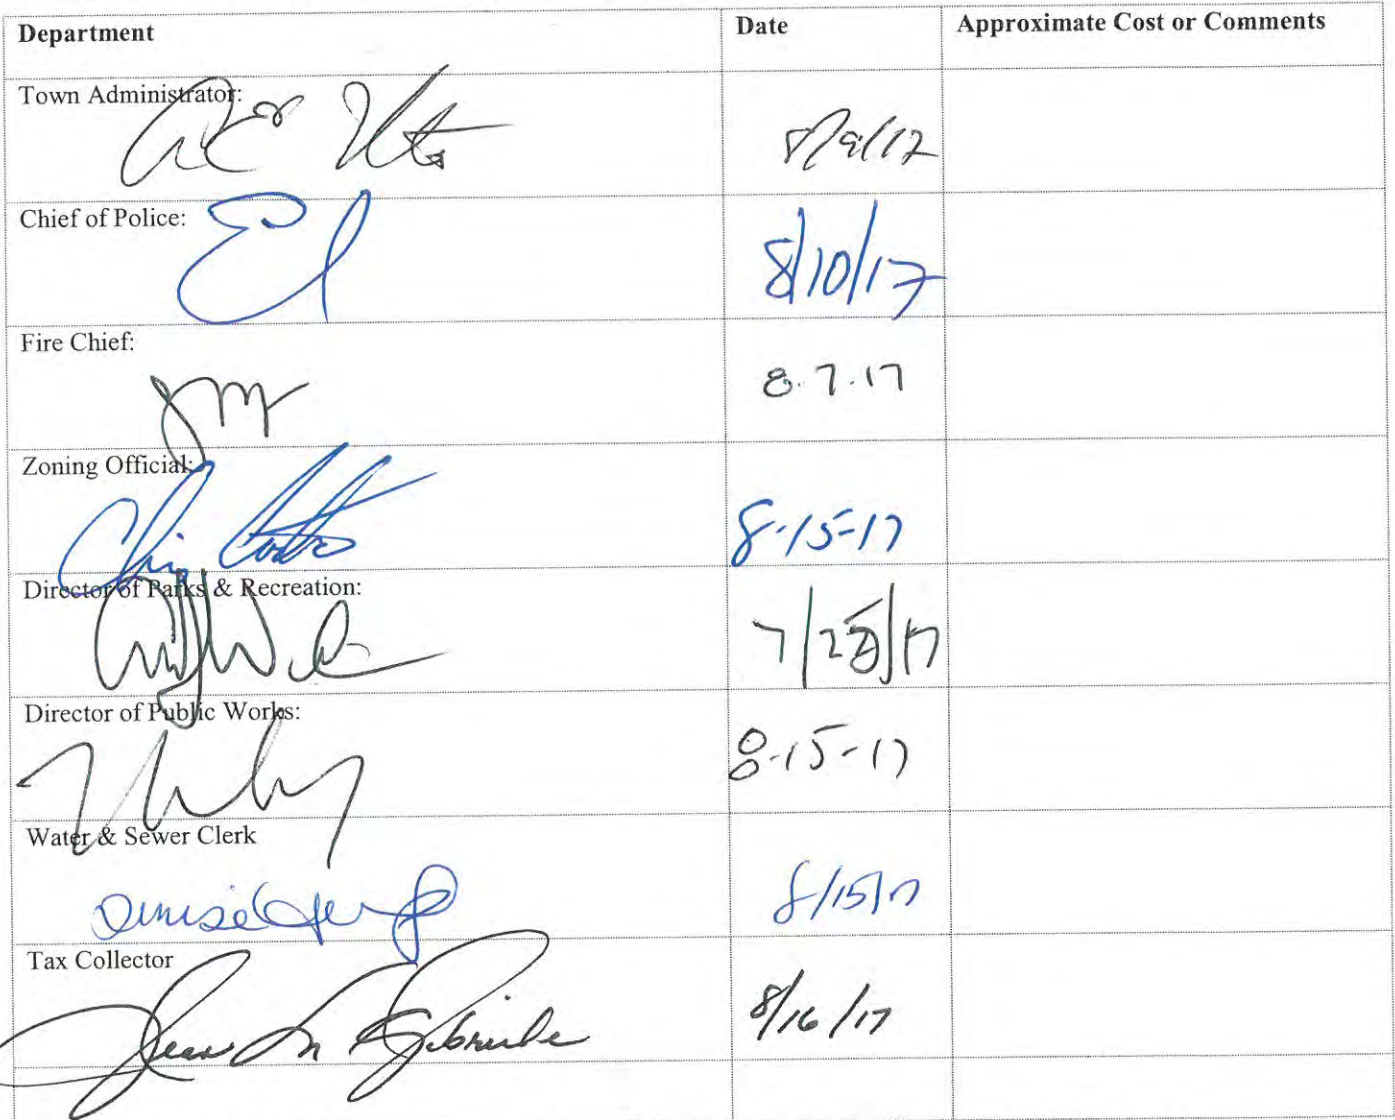 Department Date Approximate Cost or Comments
Town Administrator:
8/9/17
Chief of Police:
8/10/17
Fire Chief:
8.7.17
Zoning Official:
8-15-17
Director of Parks & Recreation:
7/25/17
Director of Public Works:
8-15-17
Water & Sewer Clerk
Denise
8/15/17
Tax Collector
Jean M
8/16/17